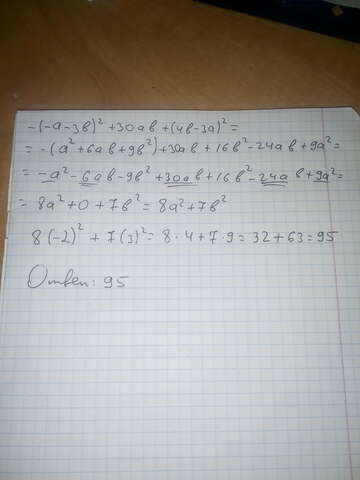 -(-a-3b)² +30ab +(4b-3a)² =
= -(a²+6ab+9b²)+30ab + 16b²-24ab +9a² =
= -a²-6ab-9b²+30ab+16b²-24ab+9a² =
= 8a²+0+7b² = 8a²+7b²
8(-2)² + 7(3)² = 8·4+7·9 = 32+63 = 95
Ответ: 95